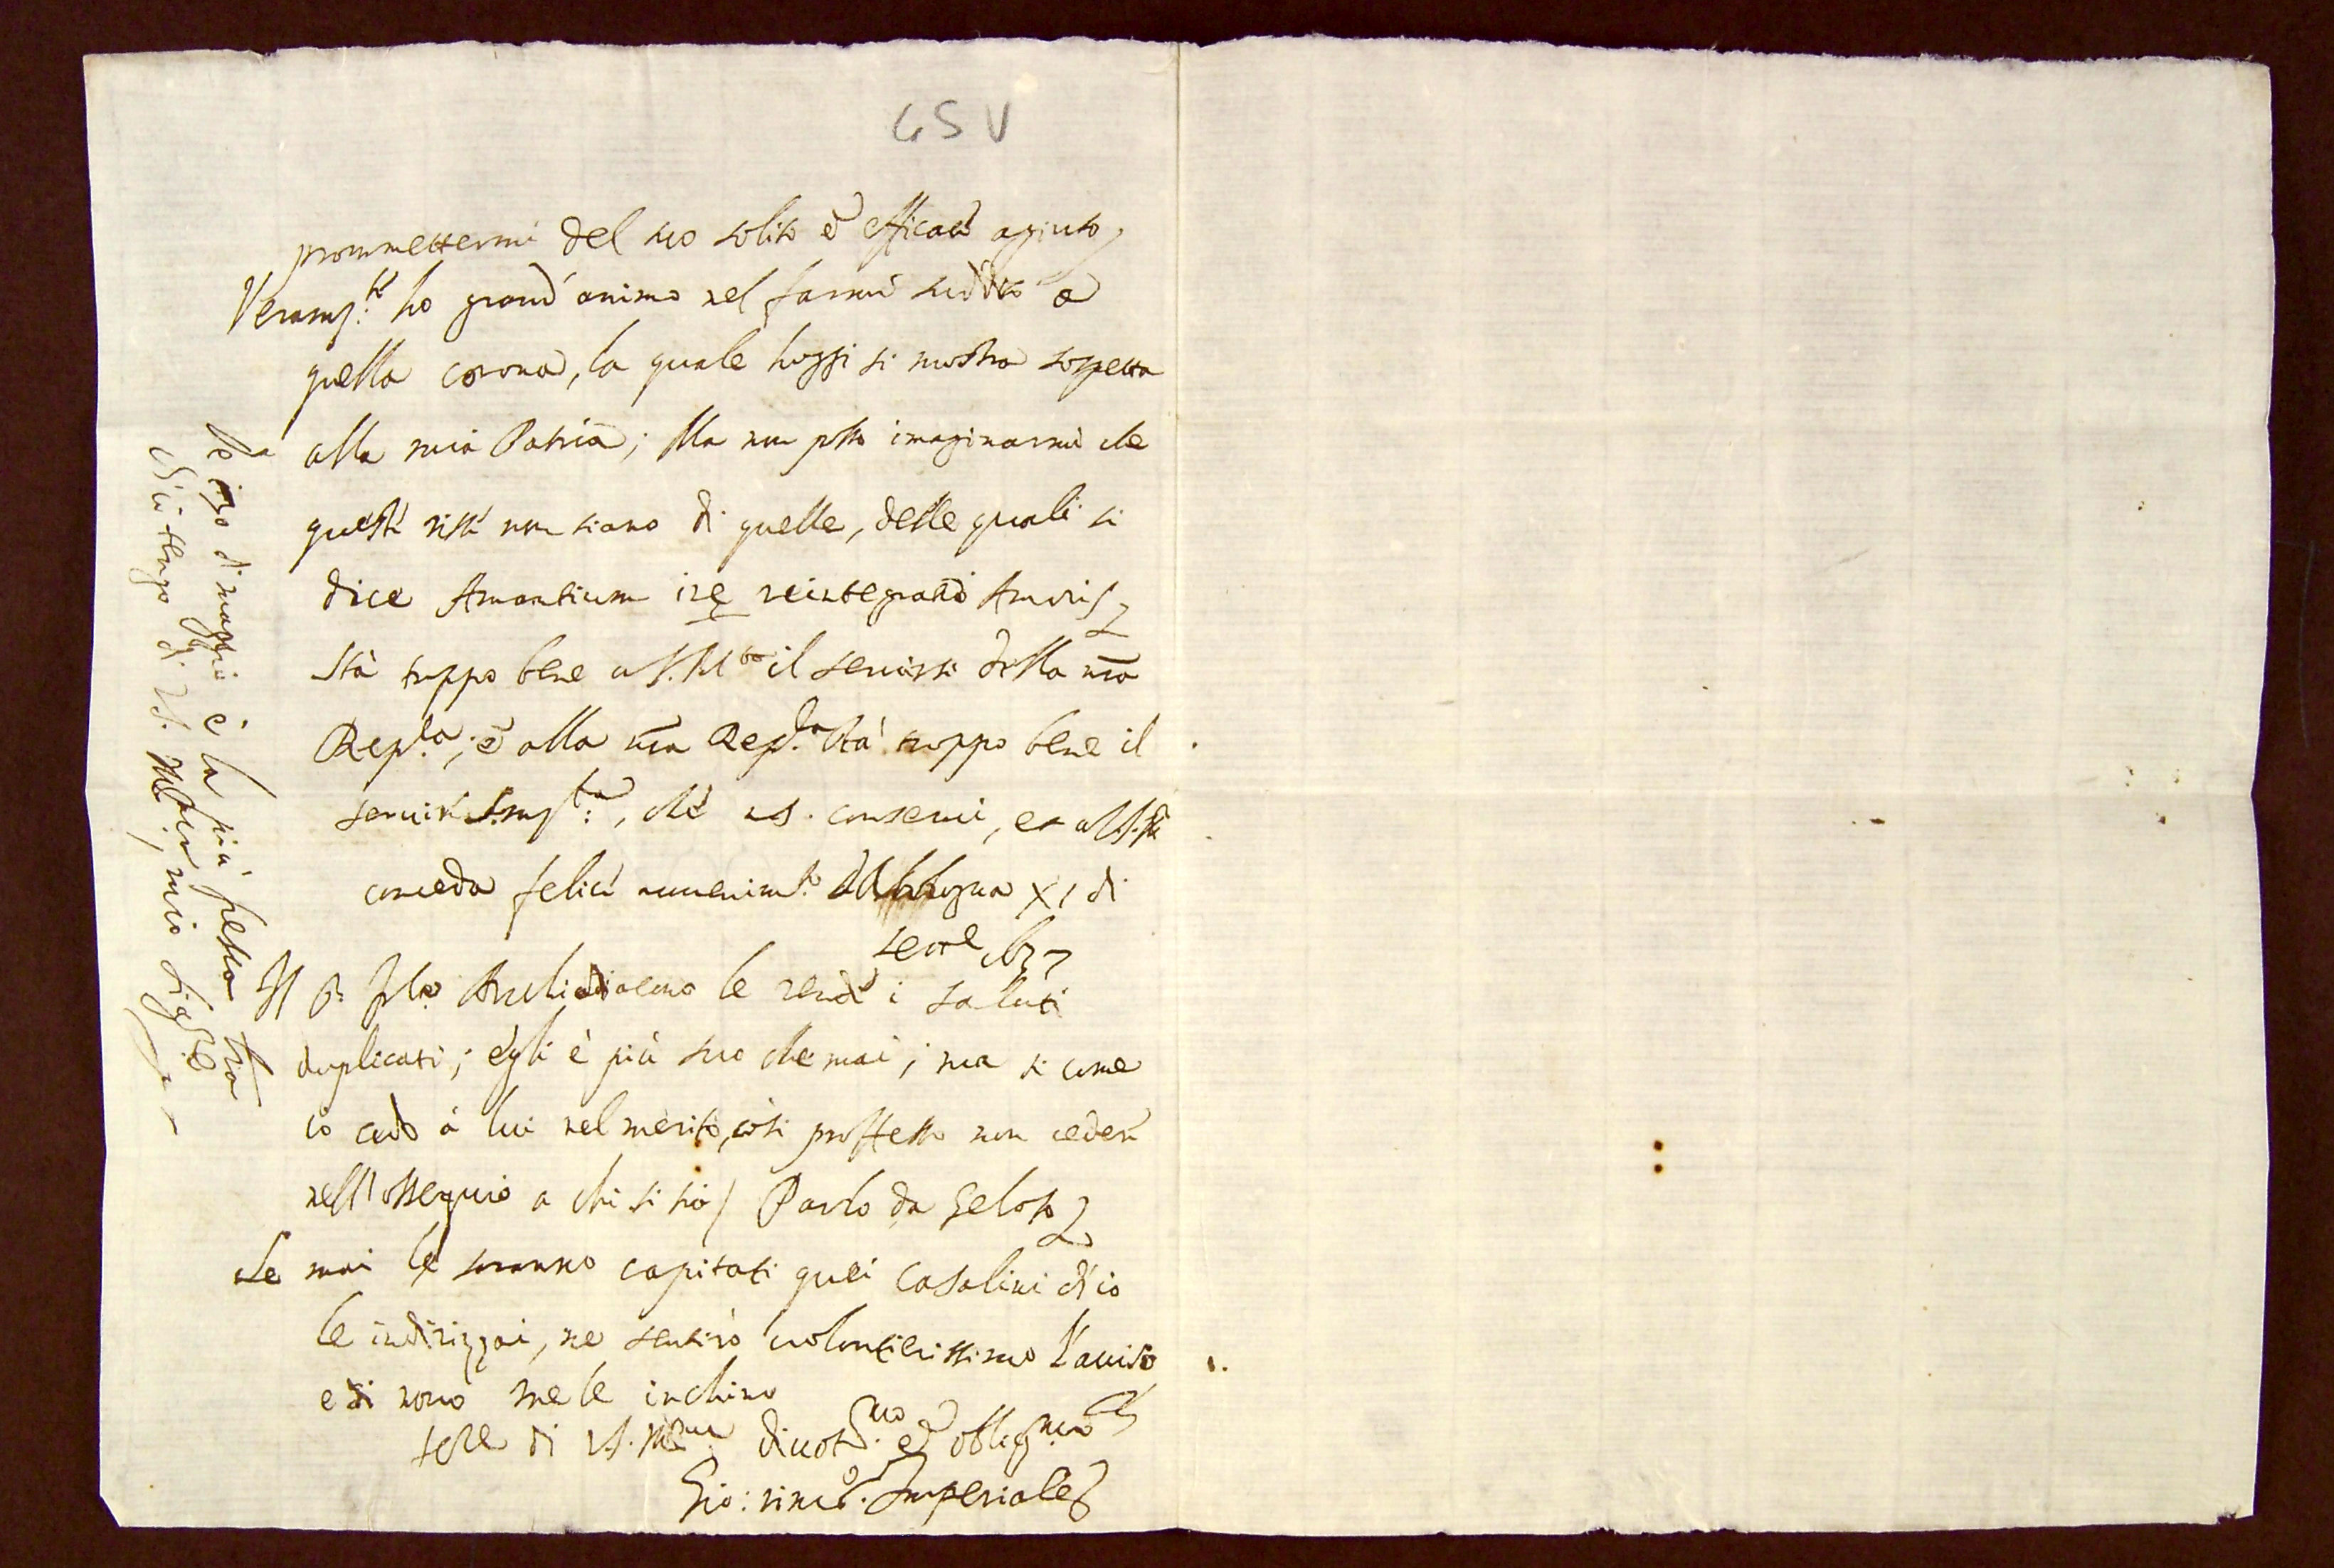 45 V
prommettermi del suo solito è efficace agiuto,
Veram:te ho grand' animo nel farmi suddito a
quella corona, la quale hoggi si mostra sospetta
alla mia Patria; Ma non posso imaginarmi che
queste risse non siano di quelle, delle quali si
dice Amantium ire reintegratio Amoris
Stà troppo bene a S. M.tà il seruirsi della nra
Rep.ca; è alla nra Rep.ca stà troppo bene il
seruire S. M.tà:, che us. conserui, et a
conceda felici auuenim.ti Di bologna XI di
Il P. Aschidiacono le rende i saluti
duplicati; egli è più suo che mai; ma si come
io cedo à lui nel merito, così professo non ceder
nell'ossequio a chi si sia / Parlo da Geloso
Se mai le saranno capitati quei Casalini ch'io
le indirizzai, ne sentirò uolontierissimo l'auiso
e di nouo me le inchino
di V.S. diuot.mo ed oblig.mo
Gio: vinc.o Imperiale
di maggio è la più fessa
di V.S. mio sig.re